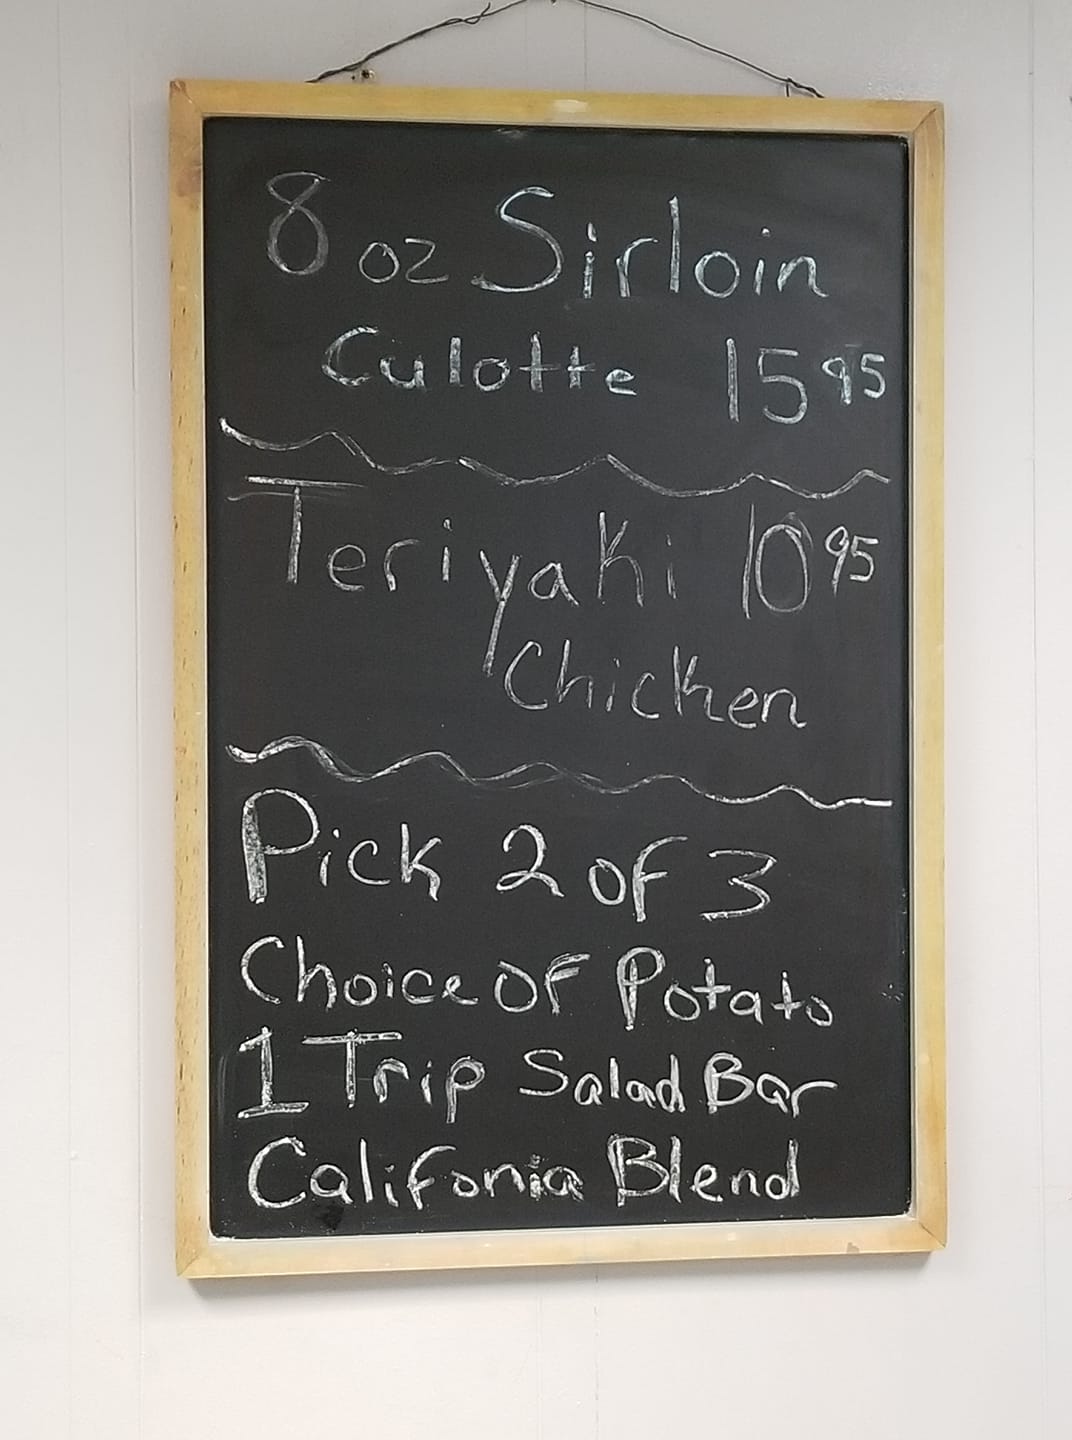 8 oz Sirloin
Culotte 15 95
Teriyaki 10 95
Chicken
Pick 2 of 3
Choice of Potato
1 Trip Salad Bar
Califonia Blend